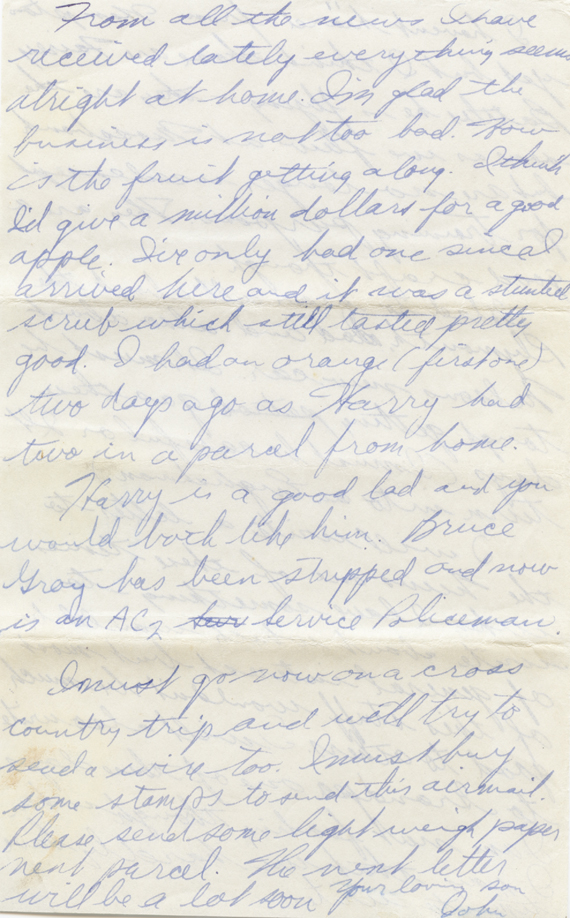 From all the news I have
received lately everything seems
alright at home. I'm glad the
business is not too bad. How
is the fruit getting along. I think
I'd give a million dollars for a good
apple. I've only had one sinceI
arrived here and it was a stunted
scrub which still tasted pretty
good. I had an orange (first one)
two days ago as Harry had
two in a parcel from home.
Harry is a good lad and you
would both like him. Bruce
Gray has been stripped and now
is an AC2 Service Policeman.
I must go now on a cross
country trip and will try to
send a wire too. I must buy
some stamps to send this airmail.
Please send some light weigh paper
next parcel. The next letter
will be a lot soon Your loving son
John